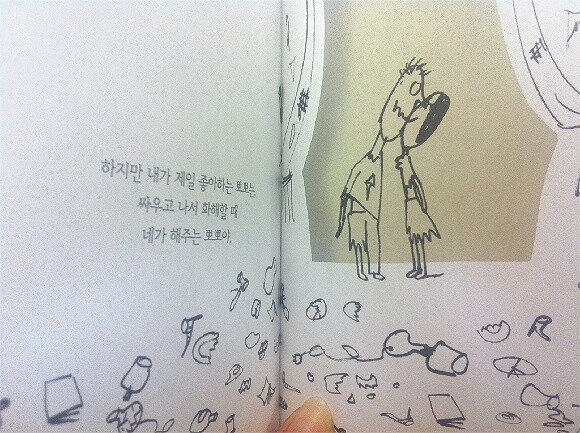 하지만 내가 제일 좋아하는 뽀뽀는,
싸우고 나서 화해할 때
네가 해주는 뽀뽀야.